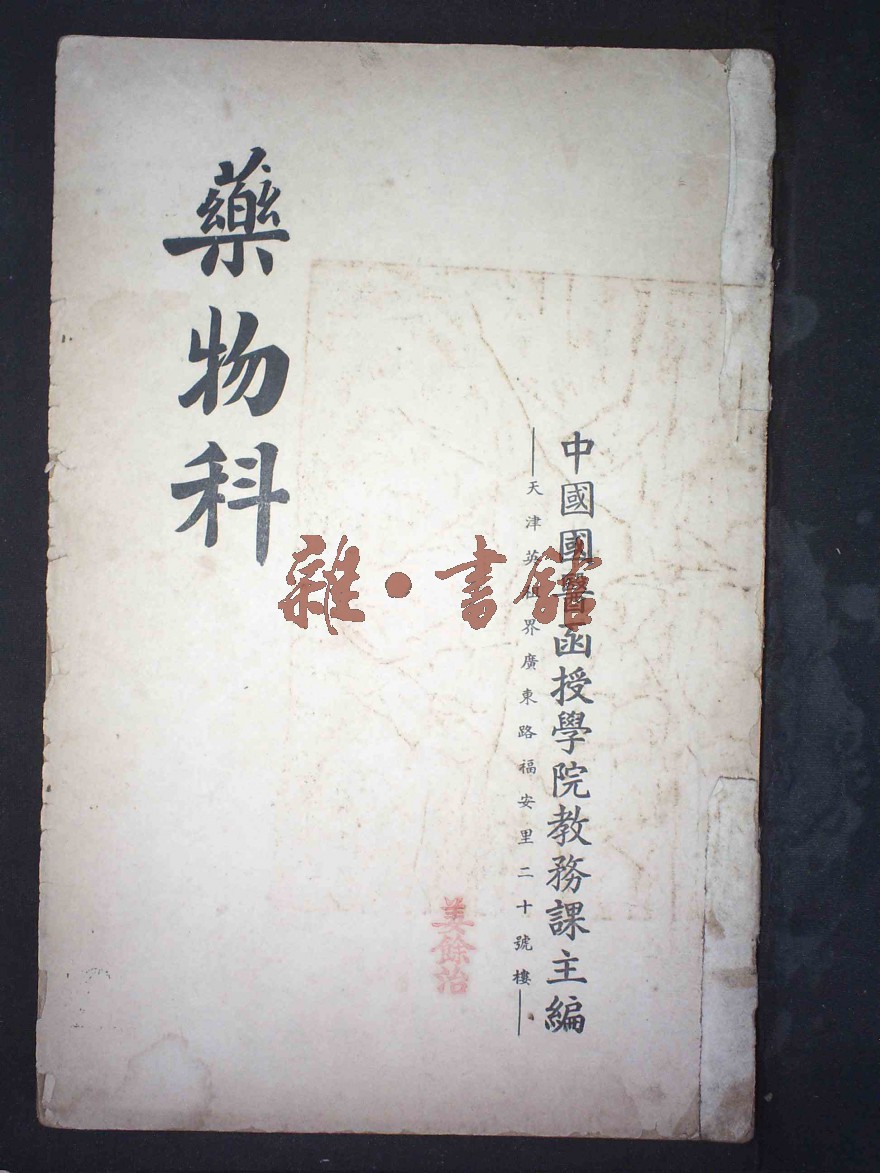 中國國醫函授學院教務課主編
—天津英租界廣東路福安里二十號樓—
藥物科
姜餘治
雜·書館